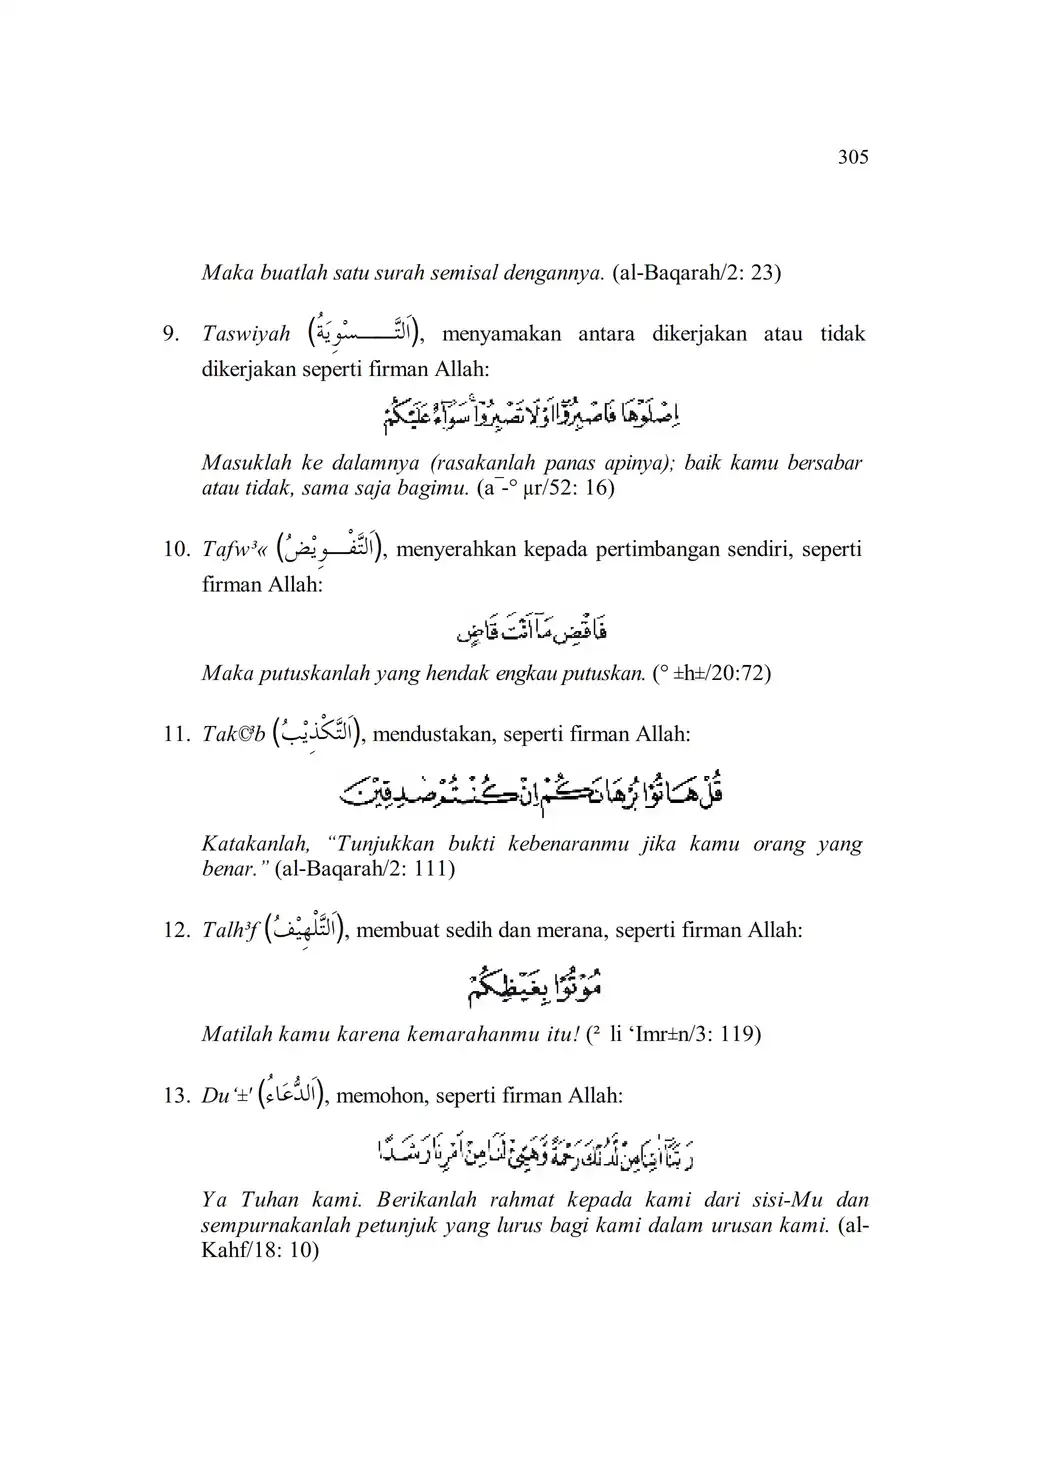 305
Maka buatlah satu surah semisal dengannya. (al-Baqarah/2: 23)
9. Taswiyah (اَلتَّـــــسْوِيَةُ), menyamakan antara dikerjakan atau tidak
dikerjakan seperti firman Allah:
اِصْلَوْهَا فَاصْبِرُوْٓا اَوْ لَا تَصْبِرُوْاۚ سَوَاۤءٌ عَلَيْكُمْ
Masuklah ke dalamnya (rasakanlah panas apinya); baik kamu bersabar
atau tidak, sama saja bagimu. (a¯-° µr/52: 16)
10. Tafw³« (اَلتَّفْـــوِيْضُ), menyerahkan kepada pertimbangan sendiri, seperti
firman Allah:
فَاقْضِ مَآ اَنْتَ قَاضٍ
Maka putuskanlah yang hendak engkau putuskan. (° ±h±/20:72)
11. Tak©³b (اَلتَّكْذِيْبُ), mendustakan, seperti firman Allah:
قُلْ هَاتُوْا بُرْهَانَكُمْ اِنْ كُنْتُمْ صٰدِقِيْنَ
Katakanlah, “Tunjukkan bukti kebenaranmu jika kamu orang yang
benar.” (al-Baqarah/2: 111)
12. Talh³f (اَلتَّلْهِيْفُ), membuat sedih dan merana, seperti firman Allah:
مُوْتُوْا بِغَيْظِكُمْ
Matilah kamu karena kemarahanmu itu! (² li ‘Imr±n/3: 119)
13. Du‘±' (اَلدُّعَاءُ), memohon, seperti firman Allah:
رَبَّنَآ اٰتِنَا مِنْ لَّدُنْكَ رَحْمَةً وَّهَيِّئْ لَنَا مِنْ اَمْرِنَا رَشَدًا
Ya Tuhan kami. Berikanlah rahmat kepada kami dari sisi-Mu dan
sempurnakanlah petunjuk yang lurus bagi kami dalam urusan kami. (al-
Kahf/18: 10)